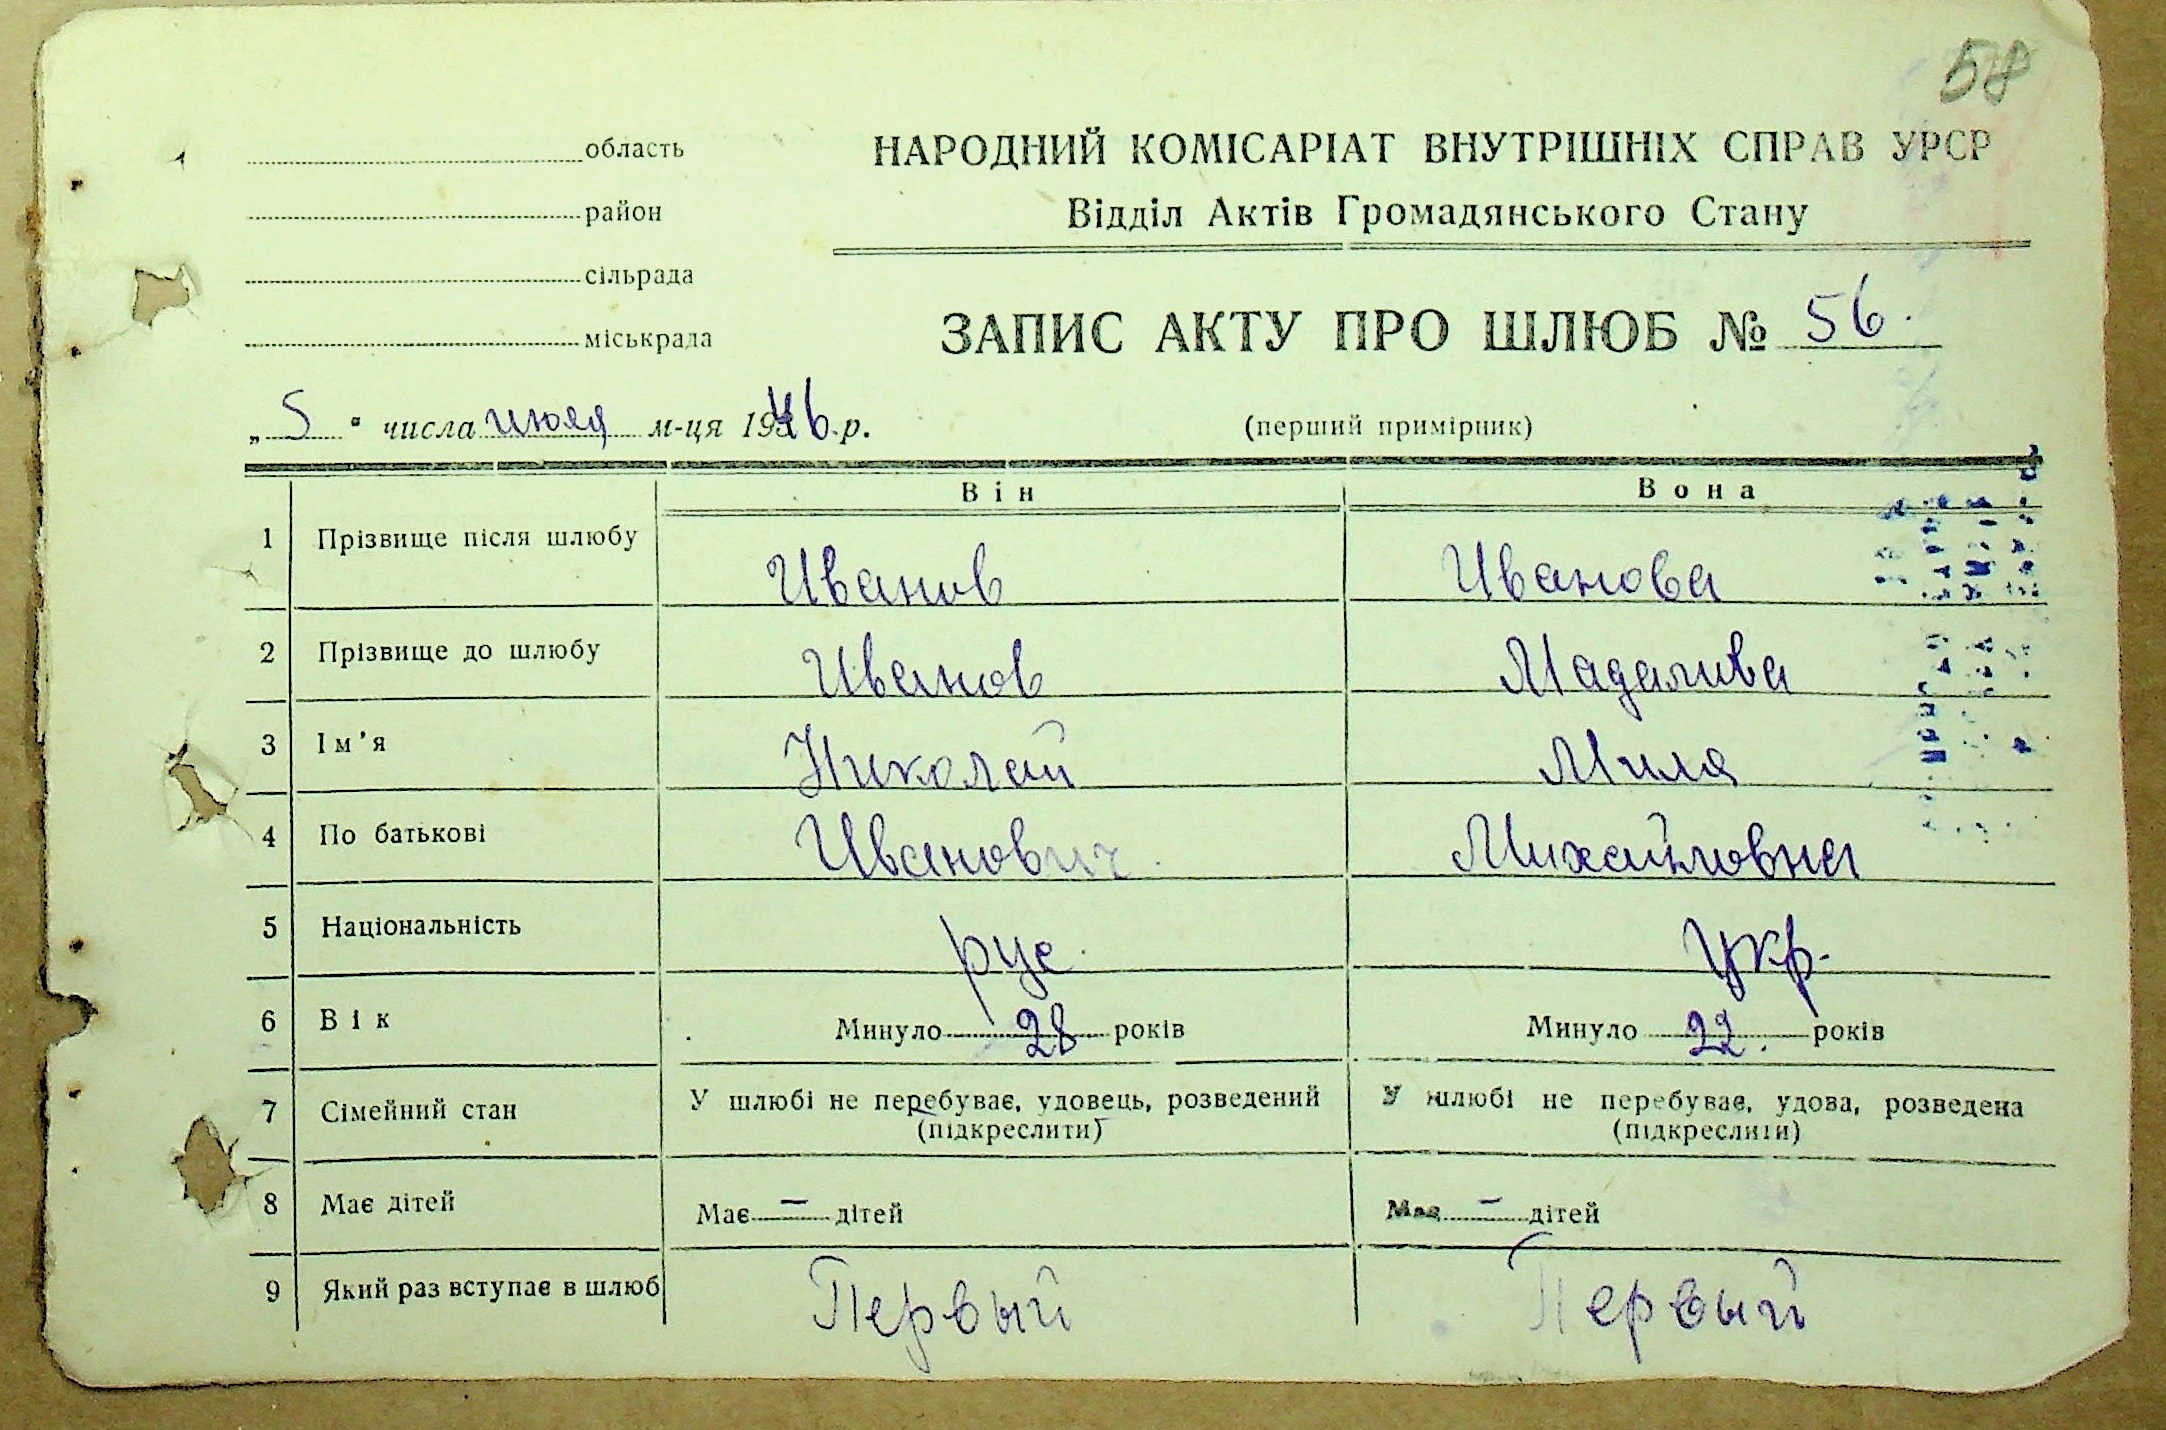 58
область
район
сільрада
міськрада
НАРОДНИЙ КОМІСАРІАТ ВНУТРІШНІХ СПРАВ УРСР
Відділ Актів Громадянського Стану
ЗАПИС АКТУ ПРО ШЛЮБ № 56.
„5“ числа июля м-ця 1946 р.
(перший примірник)
Він Вона
1 Прізвище після шлюбу Иванов Иванова
2 Прізвище до шлюбу Иванов
3 Ім'я Николай Мила
4 По батькові Иванович. Михайловна
5 Національність рус. Укр.
6 Вік Минуло 28 років Минуло 22. років
7 Сімейний стан У шлюбі не перебуває, удовець, розведений У шлюбі не перебуває, удова, розведена
(підкреслити) (підкреслити)
8 Має дітей Має – дітей Має – дітей
9 Який раз вступає в шлюб Первый Первый